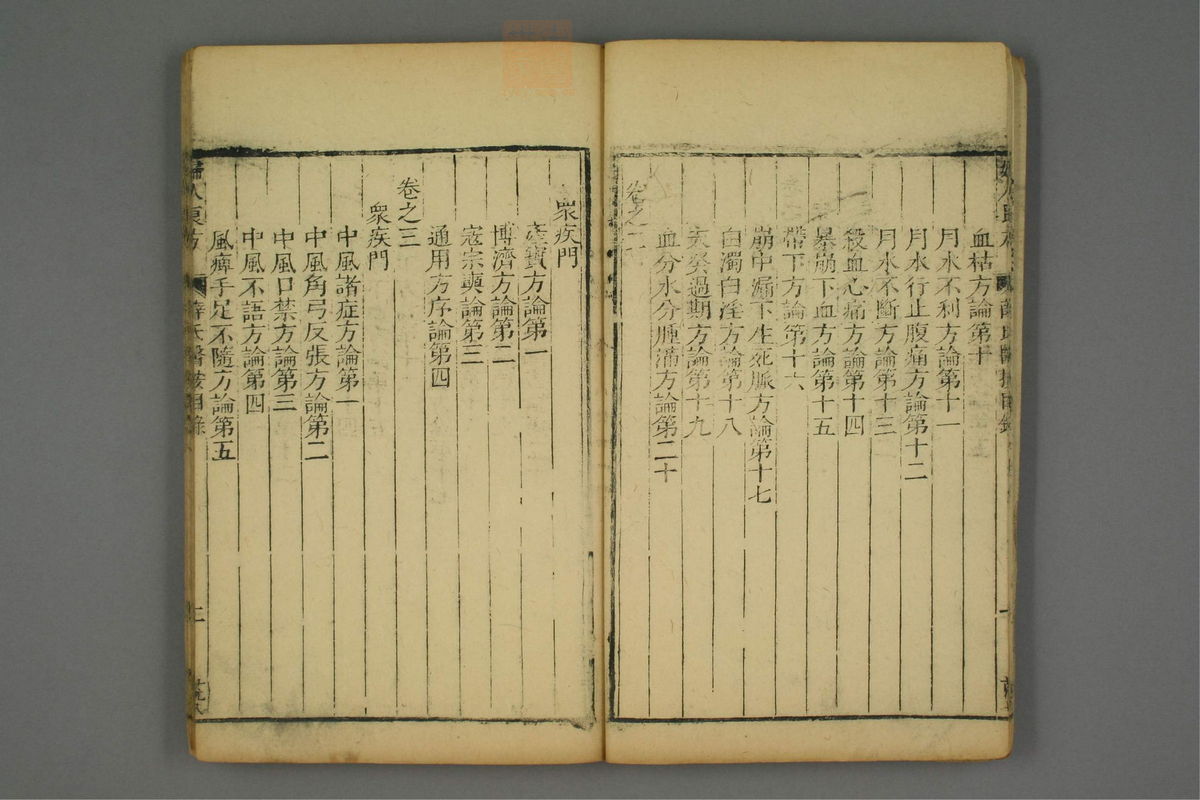 血枯方論第十
月水不利方論第十一
月水行止腹痛方論第十二
月水不斷方論第十三
殺血心痛方論第十四
暴崩下血方論第十五
帶下方論第十六
崩中漏下生死脈方論第十七
白濁白淫方論第十八
天癸過期方論第十九
血分水分腫滿方論第二十
卷之二
眾疾門
産寶方論第一
博濟方論第二
寇宗奭論第三
通用方序論第四
卷之三
眾疾門
中風諸症方論第一
中風角弓反張方論第二
中風口禁方論第三
中風不語方論第四
風痺手足不隨方論第五
婦人良方
薛氏醫按目錄
二